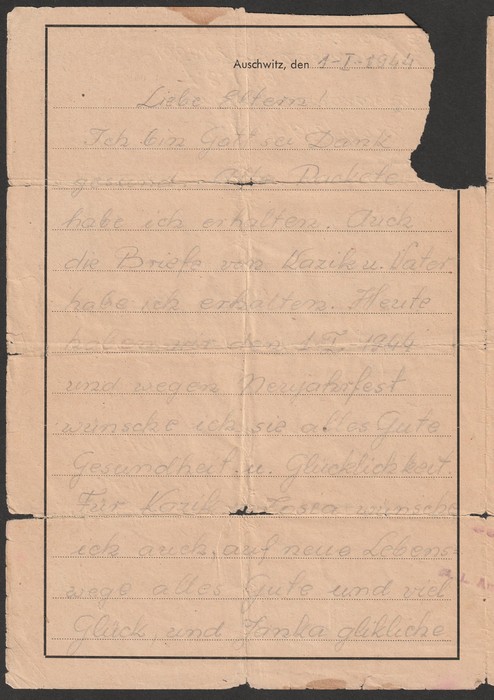 Auschwitz, den 1-I-1944
Liebe Eltern!
Ich bin Gott sei Dank
gesund. Pakete
habe ich erhalten. Auch
die Briefe von Kazik u. Vater
habe ich erhalten. Heute
haben wir den 1.I.1944
und wegen Neujahrfest
wünsche ich sie alles Gute
Gesundheit u. Glücklichkeit.
Für Kazik u. Zosca wünsche
ich auch, auf neue Lebens-
wege alles Gute und viel
Glück, und Janka glikliche